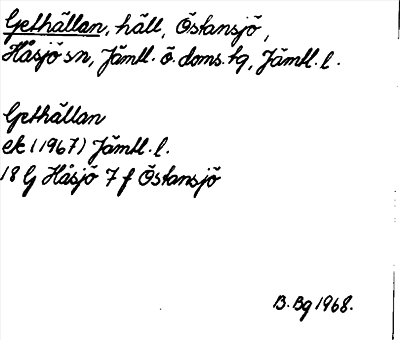 Gethällan, häll, Östansjö,
Håsjö sn, Jämtl. ö. doms. tg, Jämtl. l.
Gethällan
ek (1967) Jämtl. l.
18 G Håsjö 7 f Östansjö
B. Bg 1968.